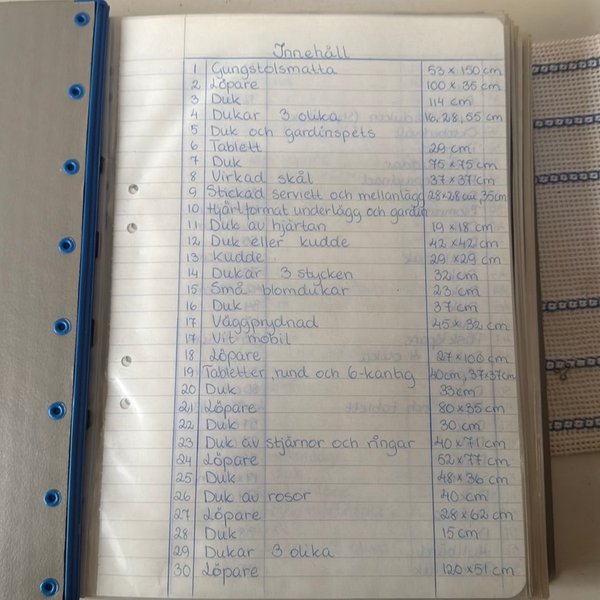 Innehåll
1 Gungstolsmatta 53 x 150 cm
2 Löpare 100 x 35 cm
3 Duk 114 cm
4 Dukar 3 olika 16, 28, 55 cm
5 Duk och gardinspets
6 Tablett 29 cm
7 Duk 75 x 75 cm
8 Virkad skål 37 x 37 cm
9 Stickad serviett och mellanlägg 28 x 28 cm, 35 cm
10 Hjärtformat underlägg och gardin
11 Duk av hjärtan 19 x 18 cm
12 Duk eller kudde 42 x 42 cm
13 Kudde 29 x 29 cm
14 Dukar 3 stycken 32 cm
15 Små blomdukar 23 cm
16 Duk 37 cm
17 Väggprydnad 45 x 32 cm
17 Vit mobil
18 Löpare 27 x 100 cm
19 Tabletter, rund och 6-kantig 40cm, 37x37cm
20 Duk 33cm
21 Löpare 80 x 35 cm
22 Duk 30 cm
23 Duk av stjärnor och ringar 40 x 71 cm
24 Löpare 52 x 77 cm
25 Duk 48 x 36 cm
26 Duk av rosor 40 cm
27 Löpare 28 x 62 cm
28 Duk 15 cm
29 Dukar 3 olika
30 Löpare 120 x 51 cm